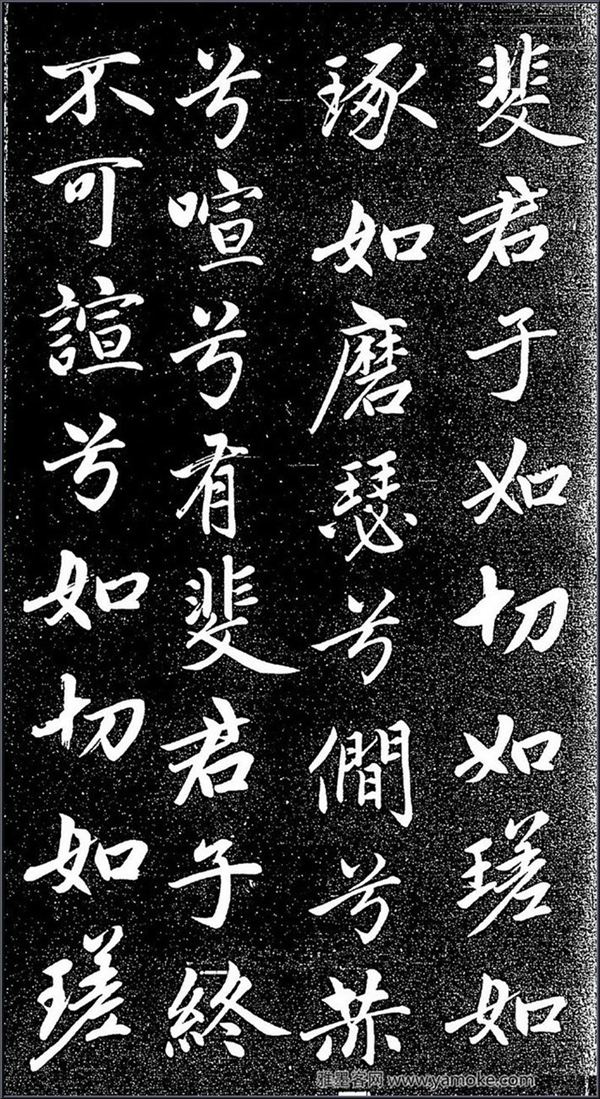 斐君子如切如瑳如
琢如磨瑟兮僩兮赫
兮喧兮有斐君子終
不可諠兮如切如瑳
雅墨客网 www.yamoke.com